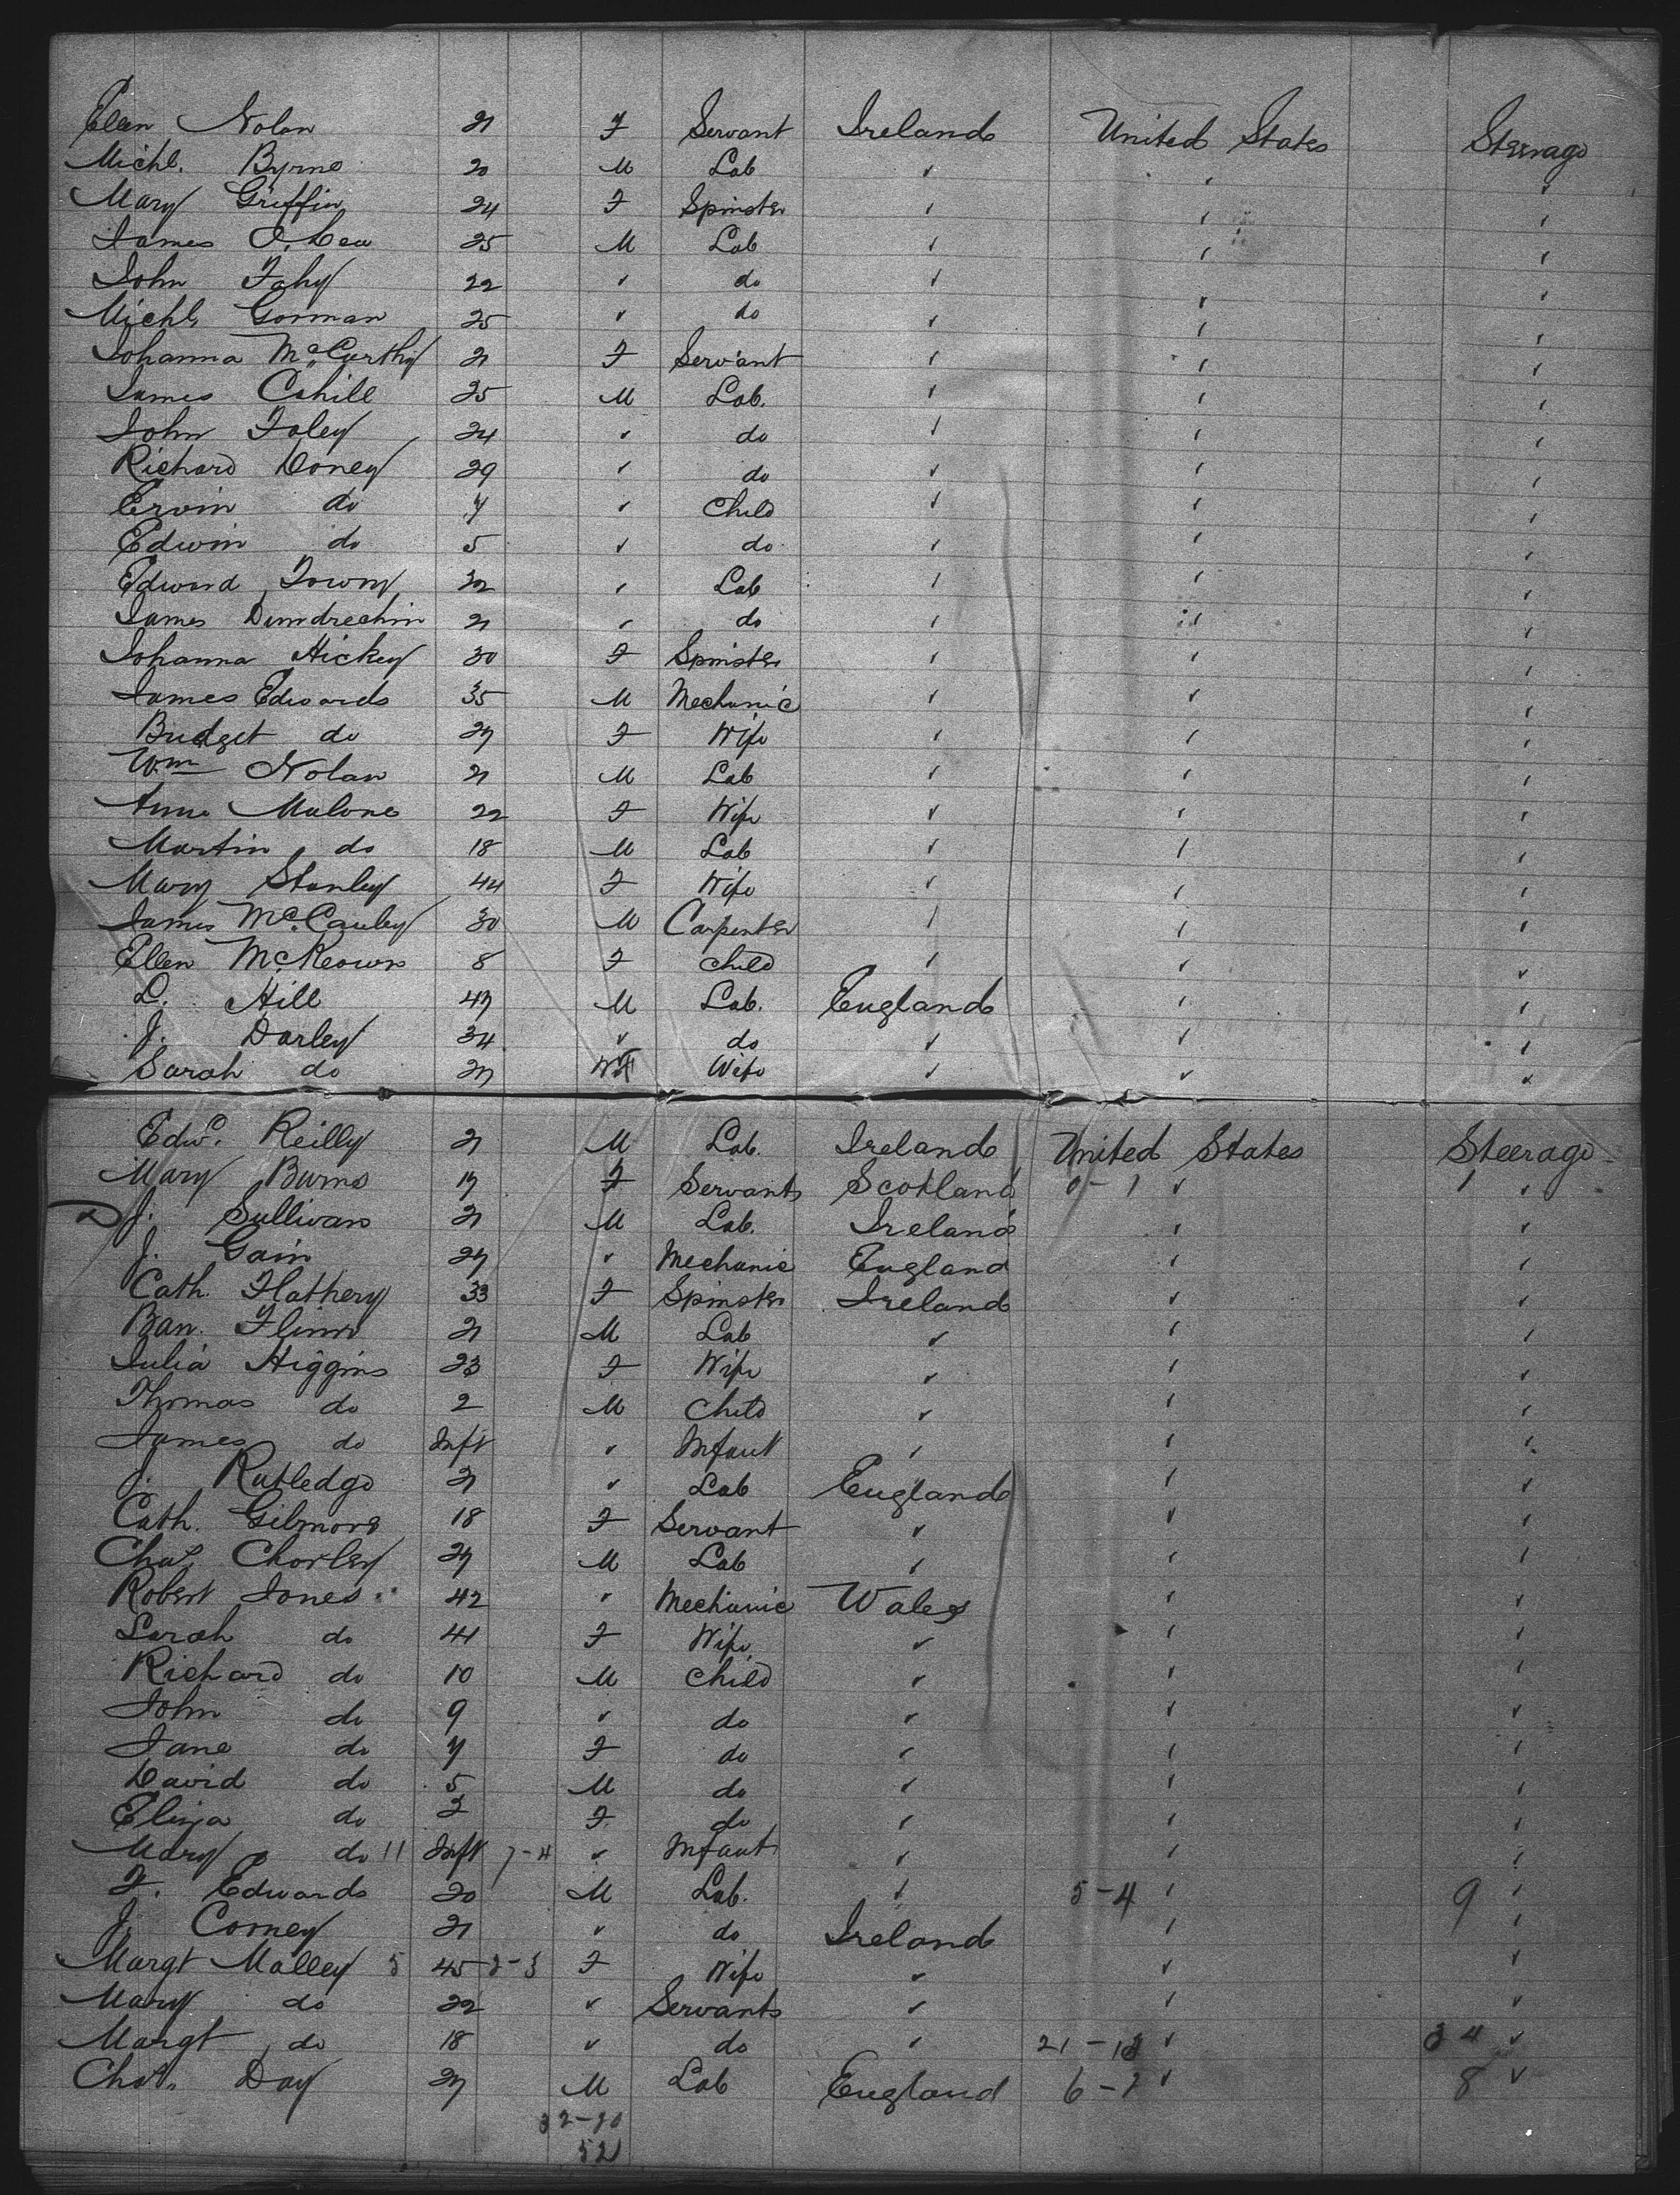 Ellen Nolan 21 F Servant Ireland United States Steerage
Michl. Byrne 20 M Lab " " "
Mary Griffin 24 F Spinster " " "
James O. Lea 25 M Lab " " "
John Fahy 22 " do " " "
Michl. Gorman 25 " do " " "
Johanna McCarthy 21 F Servant " " "
James Cahill 25 M Lab. " " "
John Foley 24 " do " " "
Richard Doney 29 " do " " "
Ervin do 7 " Child " " "
Edwin do 5 " do " " "
Edward 32 " Lab " " "
James Dundrechin 21 " do " " "
Johanna Hickey 30 F Spinster " " "
James Edwards 35 M Mechanic " " "
Bridget do 27 F Wife " " "
Wm Nolan 21 M Lab " " "
Anne Malone 22 F Wife " " "
Martin do 18 M Lab " " "
Mary Stanley 44 F Wife " " "
James McCauley 30 M Carpenter " " "
Ellen McKeown 8 F Child " " "
L. Hill 47 M Lab. England " "
J. Darley 34 " do " " "
Sarah do 27 F Wife " " "
Edwd. Reilly 21 M Lab. Ireland United States Steerage
Mary Burns 17 F Servants Scotland 0-1 " 1 "
J. Sullivan 21 M Lab. Ireland " "
J. Gain 27 " Mechanic England " "
Cath. Flathery 33 F Spinster Ireland " "
Ban. Flinn 21 M Lab " " "
Julia Higgins 23 F Wife " " "
Thomas do 2 M Child " " "
James do Inft " Infant " " "
J. Rutledge 21 " Lab England " "
Cath. Gilmore 18 F Servant " " "
Chas. Chorley 27 M Lab " " "
Robert Jones 42 " Mechanic Wales " "
Sarah do 41 F Wife " " "
Richard do 10 M Child " " "
John do 9 " do " " "
Jane do 7 F do " " "
David do 5 M do " " "
Eliza do 2 F do " " "
Mary do 11 Inft 7-4 " Infant " " "
F. Edwards 20 M Lab. " 5-4 " 9 "
J. Comey 21 " do Ireland " "
Margt Malley 5 45 2-3 F Wife " " "
Mary do 22 " Servants " " "
Margt do 18 " do " 21-13 " 34 "
Chas. Day 27 M Lab England 6-2 " 8 "
32-20
52